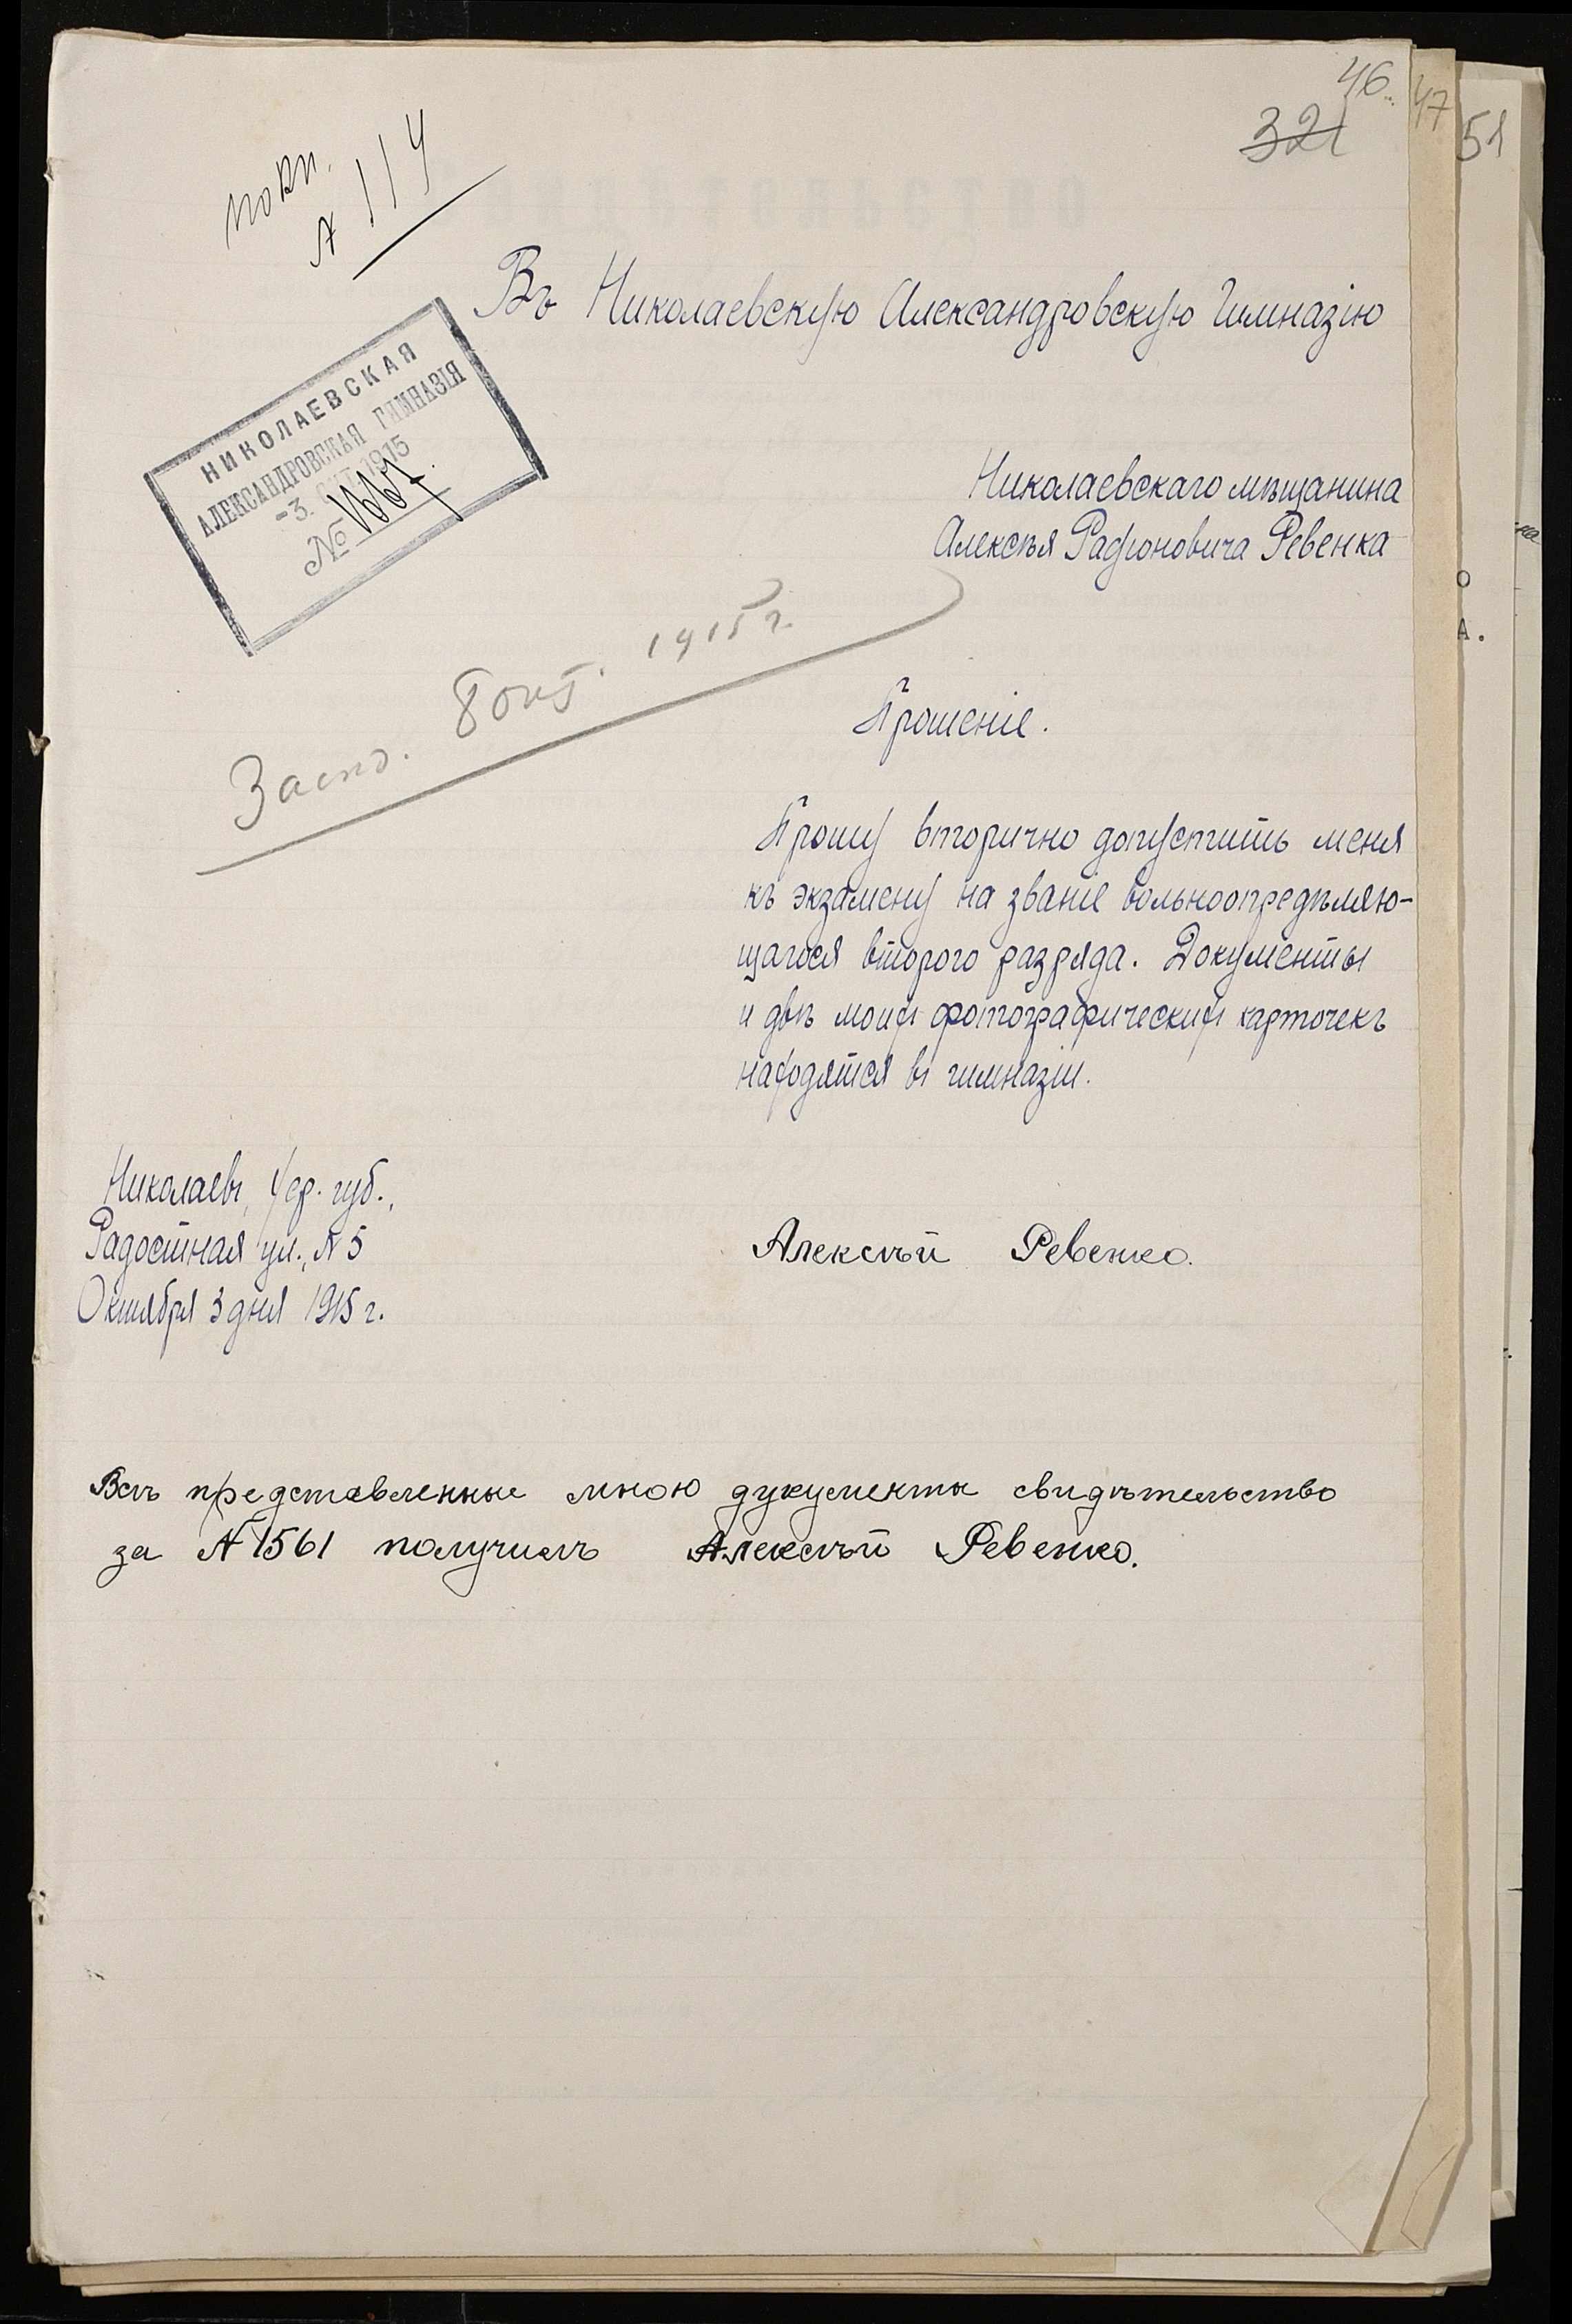 46
47
51
321
A 114
Въ Николаевскую Александровскую Гимназію
НИКОЛАЕВСКАЯ
АЛЕКСАНДРОВСКАЯ ГИМНАЗІЯ
-3. ОКТ 1915
№
Николаевскаго мѣщанина
Алексѣя Рафоновича Ревенка
8 окт. 1915 г.
Прошеніе.
Прошу вторично допустить меня
къ экзамену на званіе вольноопредѣляю-
щагося второго разряда. Документы
и двѣ моихъ фотографическихъ карточекъ
находятся въ гимназіи.
Николаевъ, Хер. губ.,
Радостная ул., N 5
Октября 3 дня 1915 г.
Алексѣй Ревенко.
Всѣ представленные мною дукументы свидѣтельство
за N 1561 получилъ Алексѣй Ревенко.